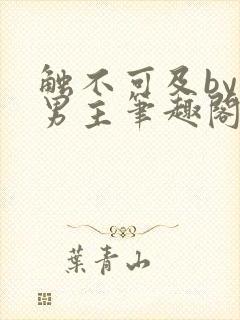 触不可及by
男主筆趣閣
葉青山